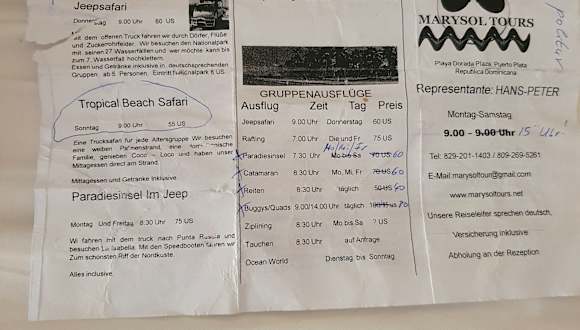 Jeepsafari
Donnerstag 9.00 Uhr 60 US
Mit dem offenen Truck fahren wir durch Dörfer, Flüße
und Zuckerrohrfelder. Wir besuchen den Nationalpark
mit seinen 27 Wasserfällen und wer möchte, kann bis
zum 7. Wasserfall hochklettern.
Essen und Getränke inklusive in deutschsprechenden
Gruppen ab 5. Personen, Eintritt Nationalpark 6 US
Tropical Beach Safari
Sonntag 9.00 Uhr 55 US
Eine Trucksafari für jede Altersgruppe Wir besuchen
eine weiben Palmenstrand, eine
Familie, genieben Coco - Loco und haben unser
Mittagessen direkt am Strand.
Mittagessen und Getränke Inklusive
Paradiesinsel Im Jeep
Montag Und Freitag 8:30 Uhr 75 US
Wi fahren mit dem truck nach Punta Rusula und
besuchen La Isabella. Mit den Speedbooten fahren wir
Zum schönsten Riff der Nordküste.
Alles inclusive.
GRUPPENAUSFLÜGE
Ausflug Zeit Tag Preis
Jeepsafari 9.00 Uhr Donnerstag 60 US
Rafting 7.00 Uhr Die und Fr 75 US
Mo/Mi/Fr
Paradiesinsel 7.30 Uhr Mo bis Sa 70 US 60
Catamaran 8.30 Uhr Mo, Mi, Fr 70 US 60
Reiten 8.30 Uhr täglich 50 US 40
Buggys/Quads 9.00/14.00 Uhr täglich 80
Ziplining 8:30 Uhr Mo bis Sa ? US
Tauchen 8.30 Uhr auf Anfrage
Ocean World Dienstag bis Sonntag
MARYSOL TOURS
Playa Dorada Plaza, Puerto Plata
Republica Dominicana
Representante: HANS-PETER
Montag-Samstag
9.00 - 9.00 Uhr 15 Uhr
Tel: 829-201-1403 / 809-269-5261
E-Mail:marysoltour@gmail.com
www.marysoltours.net
Unsere Reiseleiter sprechen deutsch,
Versicherung inklusive
Abholung an der Rezeption